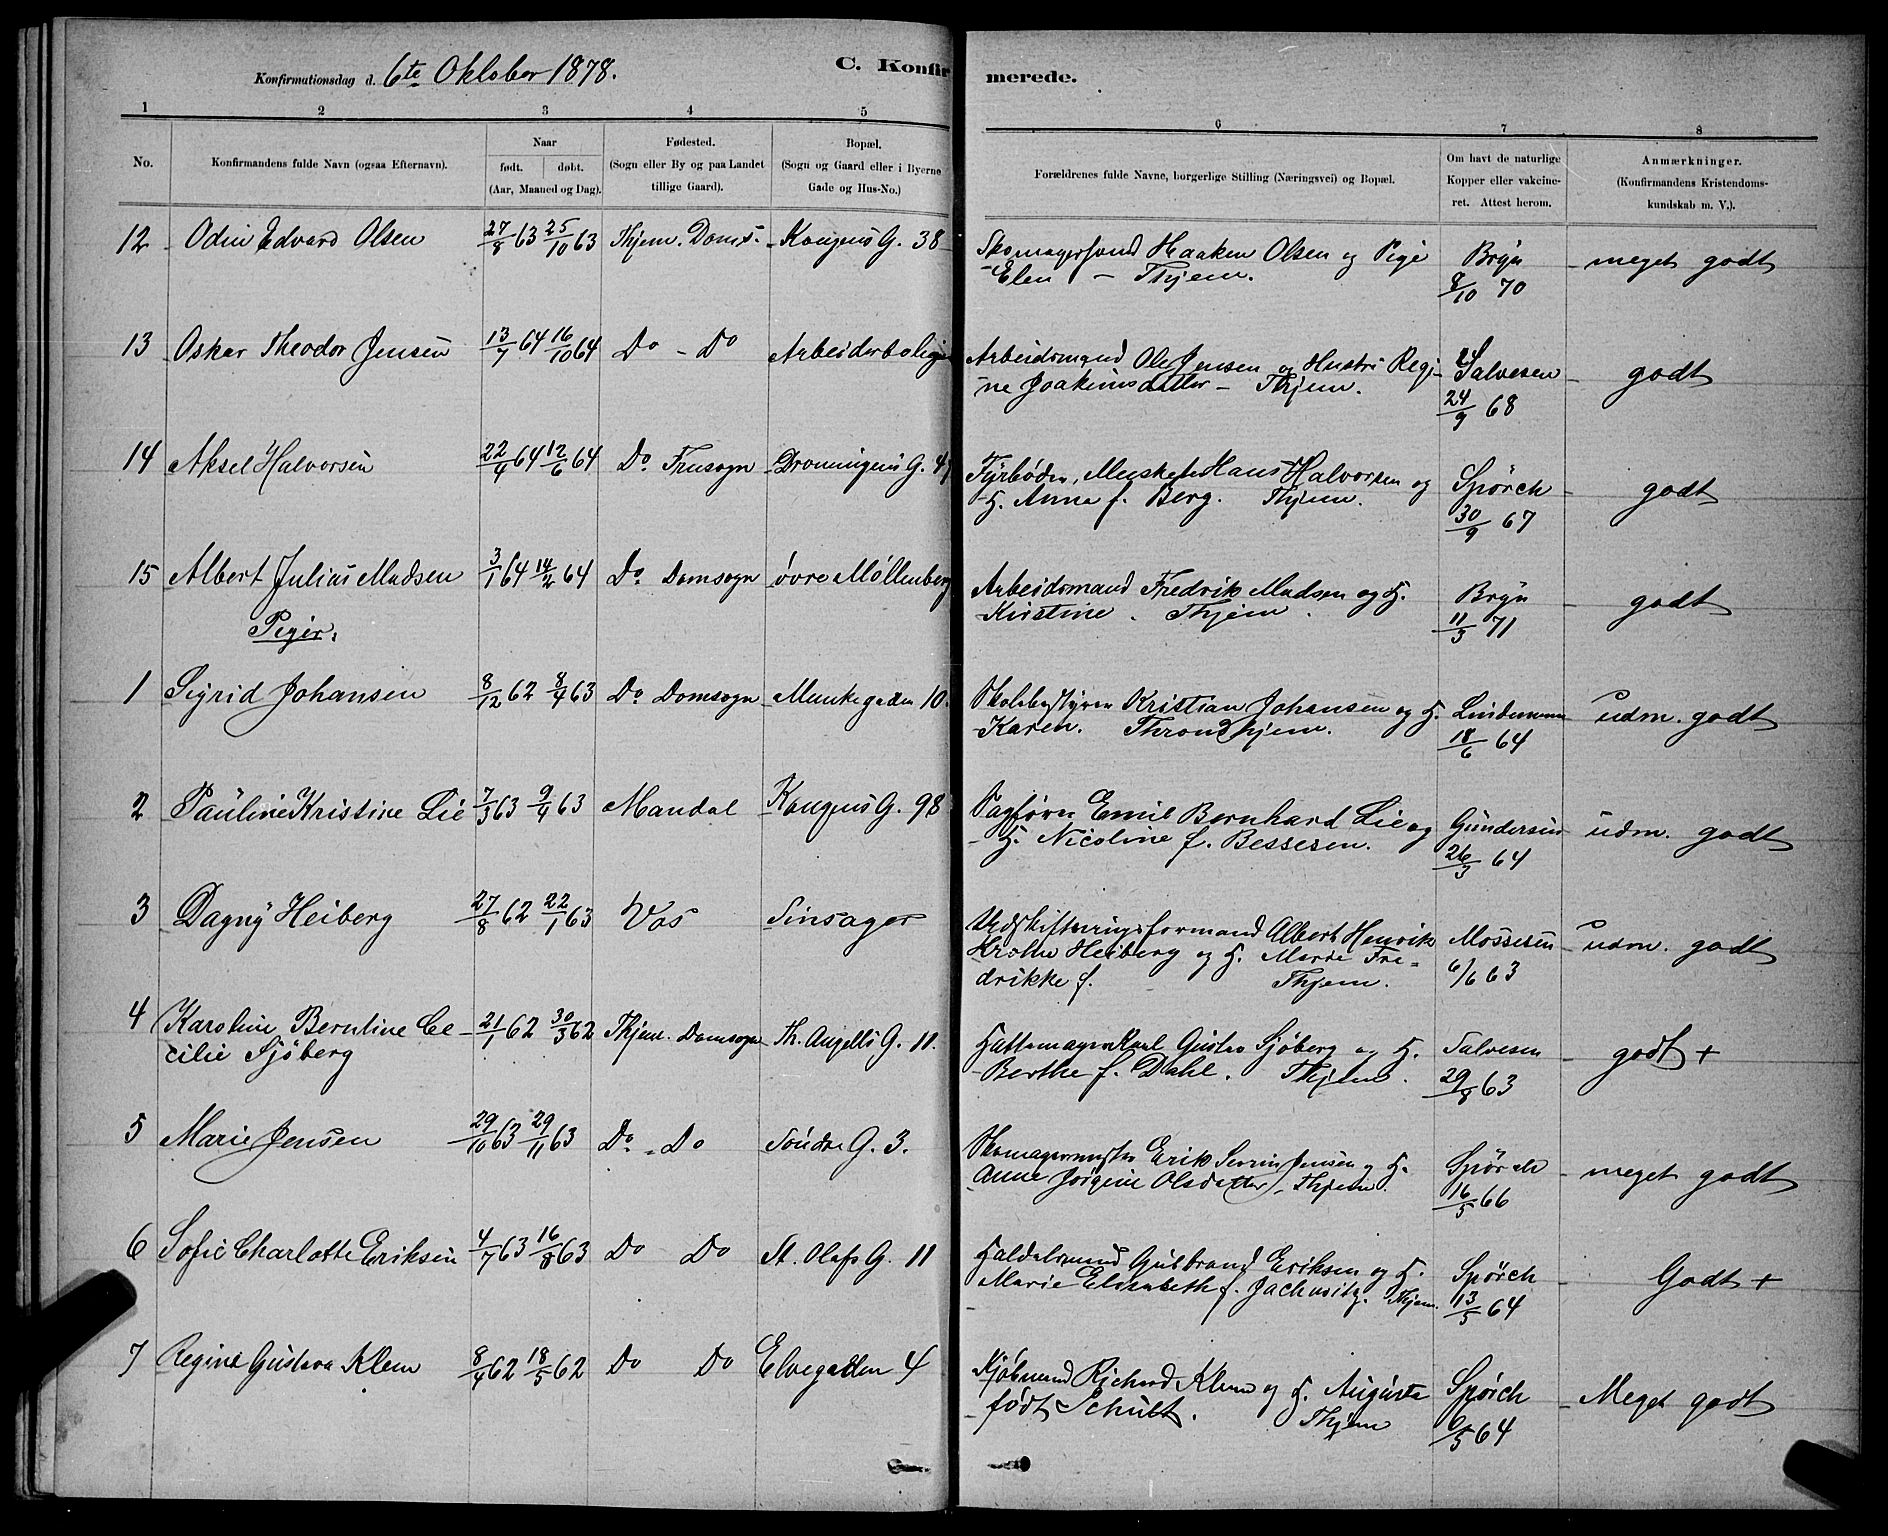 Konfirmationsdag d. 6te Oktober 1878.
C. Konfirmerede.
1 2 3 4 5 6 7 8
No.
Konfirmandens fulde Navn (ogsaa Efternavn).
Naar
født. døbt.
(Aar, Maaned og Dag).
Fødested.
(Sogn eller By og paa Landet
tillige Gaard).
Bopæl.
(Sogn og Gaard eller i Byerne
Gade og Hus-No.)
Forældrenes fulde Navne, borgerlige Stilling (Næringsvei) og Bopæl.
Om havt de naturlige
Kopper eller vakcine-
ret. Attest herom.
Anmærkninger.
(Konfirmandens Kristendoms-
kundskab m. V.).
12 Odin Edvard Olsen 27/8 63 25/10 63 Thjem. Doms. Kongens G. 38 Skomagersvend Haaken Olsen og Pige Bryn meget godt
Elen - Thjem. 8/10 70
13 Oskar Theodor Jensen 13/7 64 16/10 64 Do - Do Arbeiderbolig Arbeidsmand Ole Jensen og Hustru Regi- Salvesen godt
ne Joakimsdatter - Thjem. 24/9 68
14 Aksel Halvorsen 22/4 64 12/6 64 Do. Fruesogn Dronningens G. Fyrbøder, Hans Halvorsen og Spörch godt
H. Anna f. Berg. Thjem. 30/9 67
15 Albert Julius Madsen 3/1 64 14/2 64 Do. Domsogn øvre Møllenberg Arbeidsmand Fredrik Madsen og H. Bryn godt
Kirstine. Thjem. 11/3 71
Piger.
1 Sigrid Johansen 8/12 62 8/4 63 Do. Domsogn Munkegaden 10. Skolebestyrer Kristian Johansen og H. Lindemann udm. godt
Karen. Throndhjem. 18/6 64
2 Pauline Kristine Lie 7/3 63 9/4 63 Mandal Kongens G. 98 Sagfører Emil Bernhard Lie og Gundersen udm. godt
H. Nicoline f. Bessesen. 26/3 64
3 Dagny Heiberg 27/8 62 22/1 63 Vos Sinsager Udskiftningsformand Albert Henrik Mossesen udm. godt
Krohn Heiberg og H. Marie Fre-
drikke f. Thjem. 6/6 63
4 Karoline Berntine Ce- 21/1 62 30/3 62 Thjem. Domsogn Th. Angells G. 11. Hattemager Karl Gustav Sjøberg og H. Salvesen godt +
cilie Sjöberg Berthe f. Dahl. Thjem. 29/8 63
5 Marie Jensen 29/10 63 29/11 63 Do. - Do Söndre G. 3. Skomagermester Erik Severin Jensen og H. Spörch meget godt
Anne Jörgine Olsdatter, Thjem. 16/5 66
6 Sofie Charlotte Eriksen 4/7 63 16/8 63 Do Do St. Olafs G. 11 Gulbrand Eriksen og H. Spörch Godt +
Marie Elisabeth f. Thjem. 13/5 64
7 Regine Gustava Klem 8/4 62 18/5 62 Do Do Elvegaden 4 Kjøbmand Richard Klem og H. Augusta Spörch Meget godt
født Schult. Thjem 6/5 64